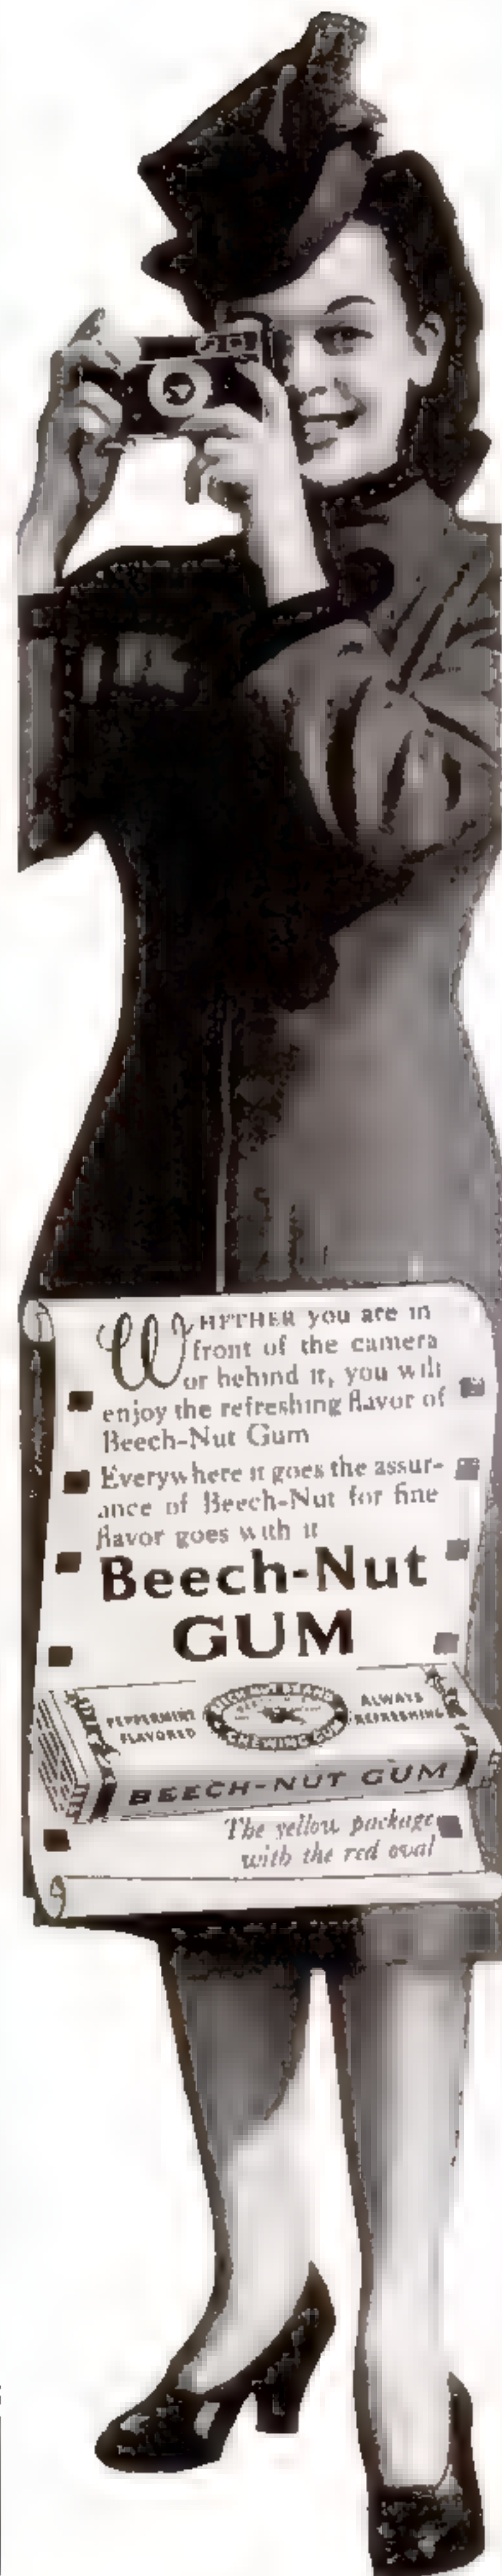 WHETHER you are in
front of the camera
or behind it, you will
enjoy the refreshing flavor of
Beech-Nut Gum
Everywhere it goes the assur-
ance of Beech-Nut for fine
flavor goes with it
Beech-Nut
GUM
PEPPERMINT
FLAVORED
BEECH-NUT BRAND
CHEWING GUM
ALWAYS
REFRESHING
BEECH-NUT GUM
The yellow package
with the red oval